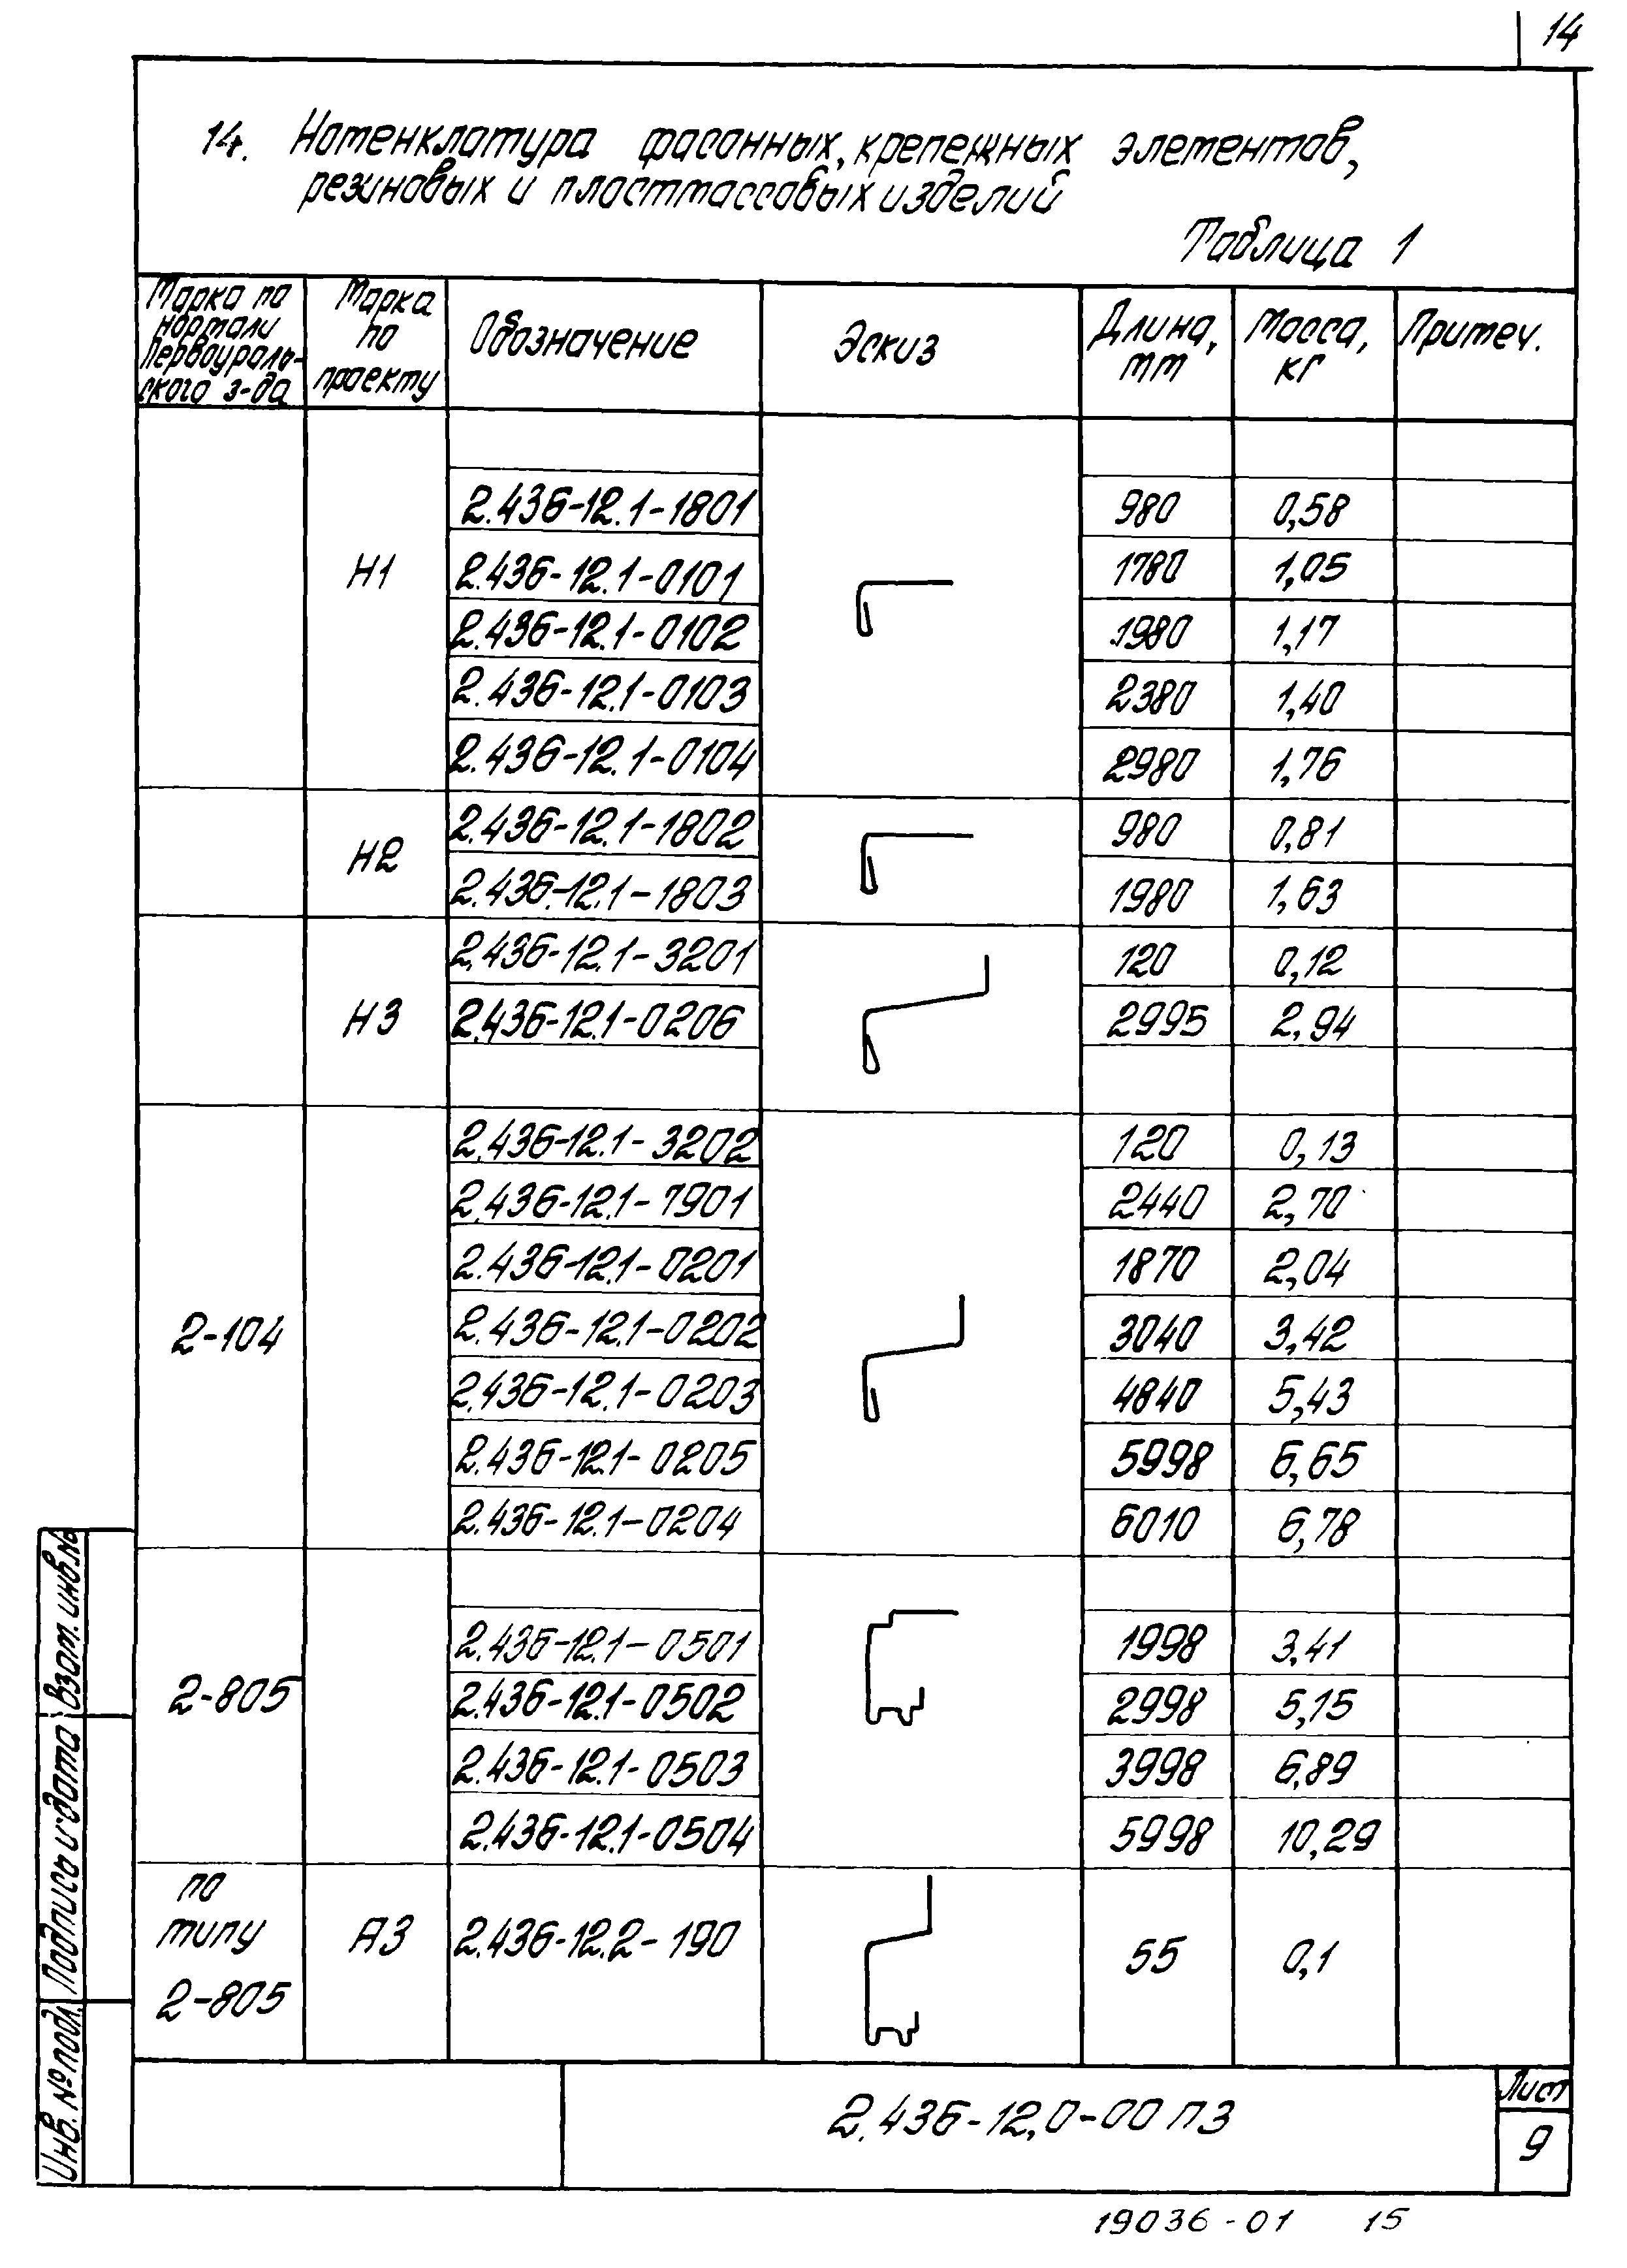 14
14. Номенклатура фасонных, крепежных элементов,
резиновых и пластмассовых изделий
Таблица 1
Марка по нормали Первоураль-ского з-да | Марка по проекту | Обозначение | Эскиз | Длина, мм | Масса, кг | Примеч.
2.436-12.1-1801 980 0,58
Н1 2.436-12.1-0101 1780 1,05
2.436-12.1-0102 1980 1,17
2.436-12.1-0103 2380 1,40
2.436-12.1-0104 2980 1,76
Н2 2.436-12.1-1802 980 0,81
2.436-12.1-1803 1980 1,63
2.436-12.1-3201 120 0,12
Н3 2.436-12.1-0206 2995 2,94
2.436-12.1-3202 120 0,13
2.436-12.1-7901 2440 2,70
2.436-12.1-0201 1870 2,04
2-104 2.436-12.1-0202 3040 3,42
2.436-12.1-0203 4840 5,43
2.436-12.1-0205 5998 6,65
2.436-12.1-0204 6010 6,78
2.436-12.1-0501 1998 3,41
2-805 2.436-12.1-0502 2998 5,15
2.436-12.1-0503 3998 6,89
2.436-12.1-0504 5998 10,29
по
типу А3 2.436-12.2-190 55 0,1
2-805
Взам. инв.№
Подпись и дата
Инв. № подл.
2.436-12,0-00 ПЗ
Лист
9
19036-01 15